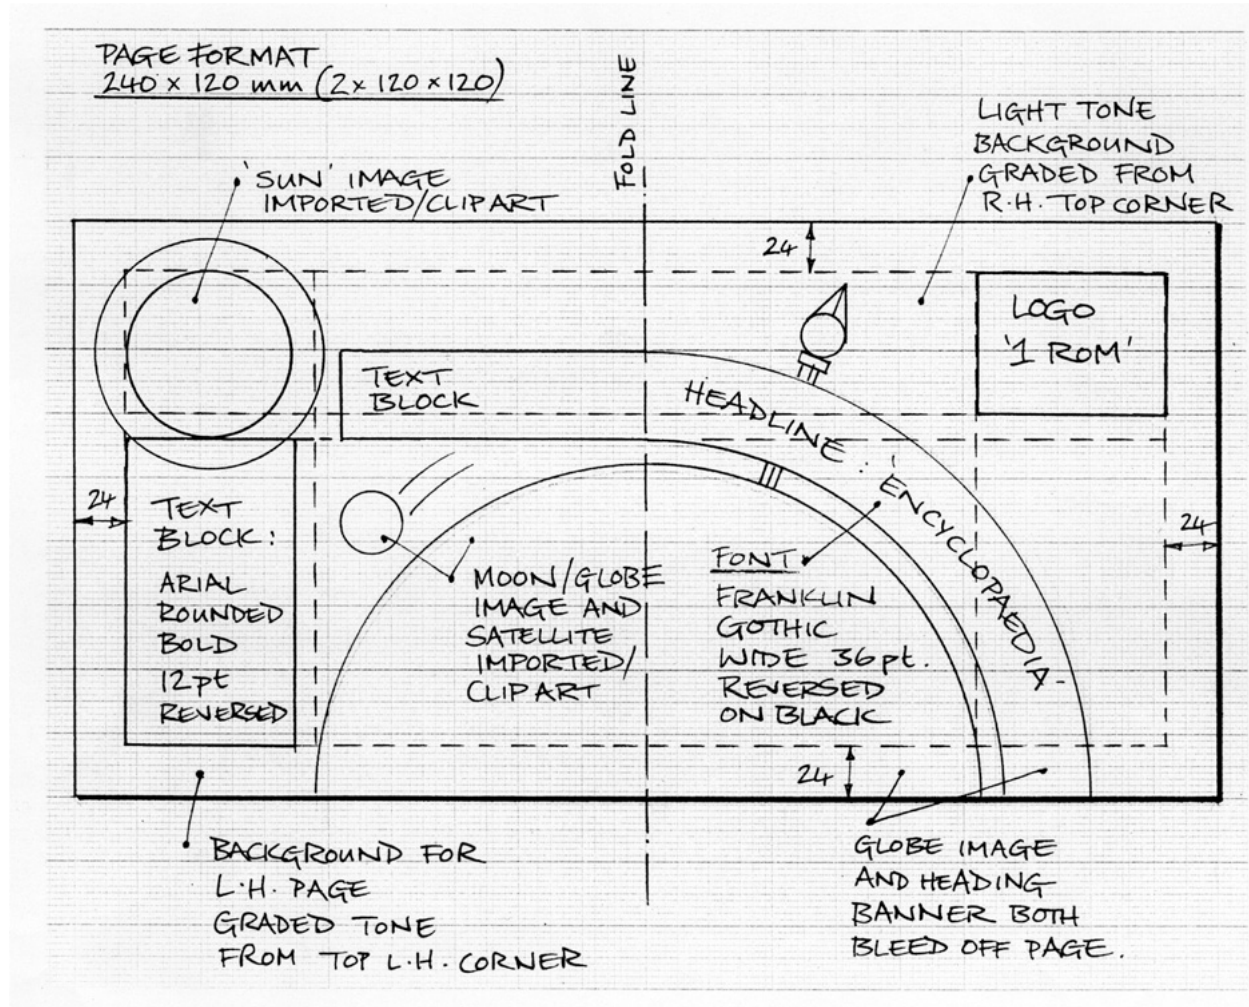 PAGE FORMAT
240 x 120 mm (2x 120 x 120)
FOLD LINE
'SUN' IMAGE
IMPORTED/CLIPART
LIGHT TONE
BACKGROUND
GRADED FROM
R.H. TOP CORNER
24
LOGO
'1 ROM'
TEXT
BLOCK
HEADLINE: 'ENCYCLOPAEDIA-
24
TEXT
BLOCK:
ARIAL
ROUNDED
BOLD
12pt
REVERSED
MOON/GLOBE
IMAGE AND
SATELLITE
IMPORTED/
CLIPART
FONT
FRANKLIN
GOTHIC
WIDE 36pt.
REVERSED
ON BLACK
24
24
BACKGROUND FOR
L.H. PAGE
GRADED TONE
FROM TOP L.H. CORNER
GLOBE IMAGE
AND HEADING
BANNER BOTH
BLEED OFF PAGE.